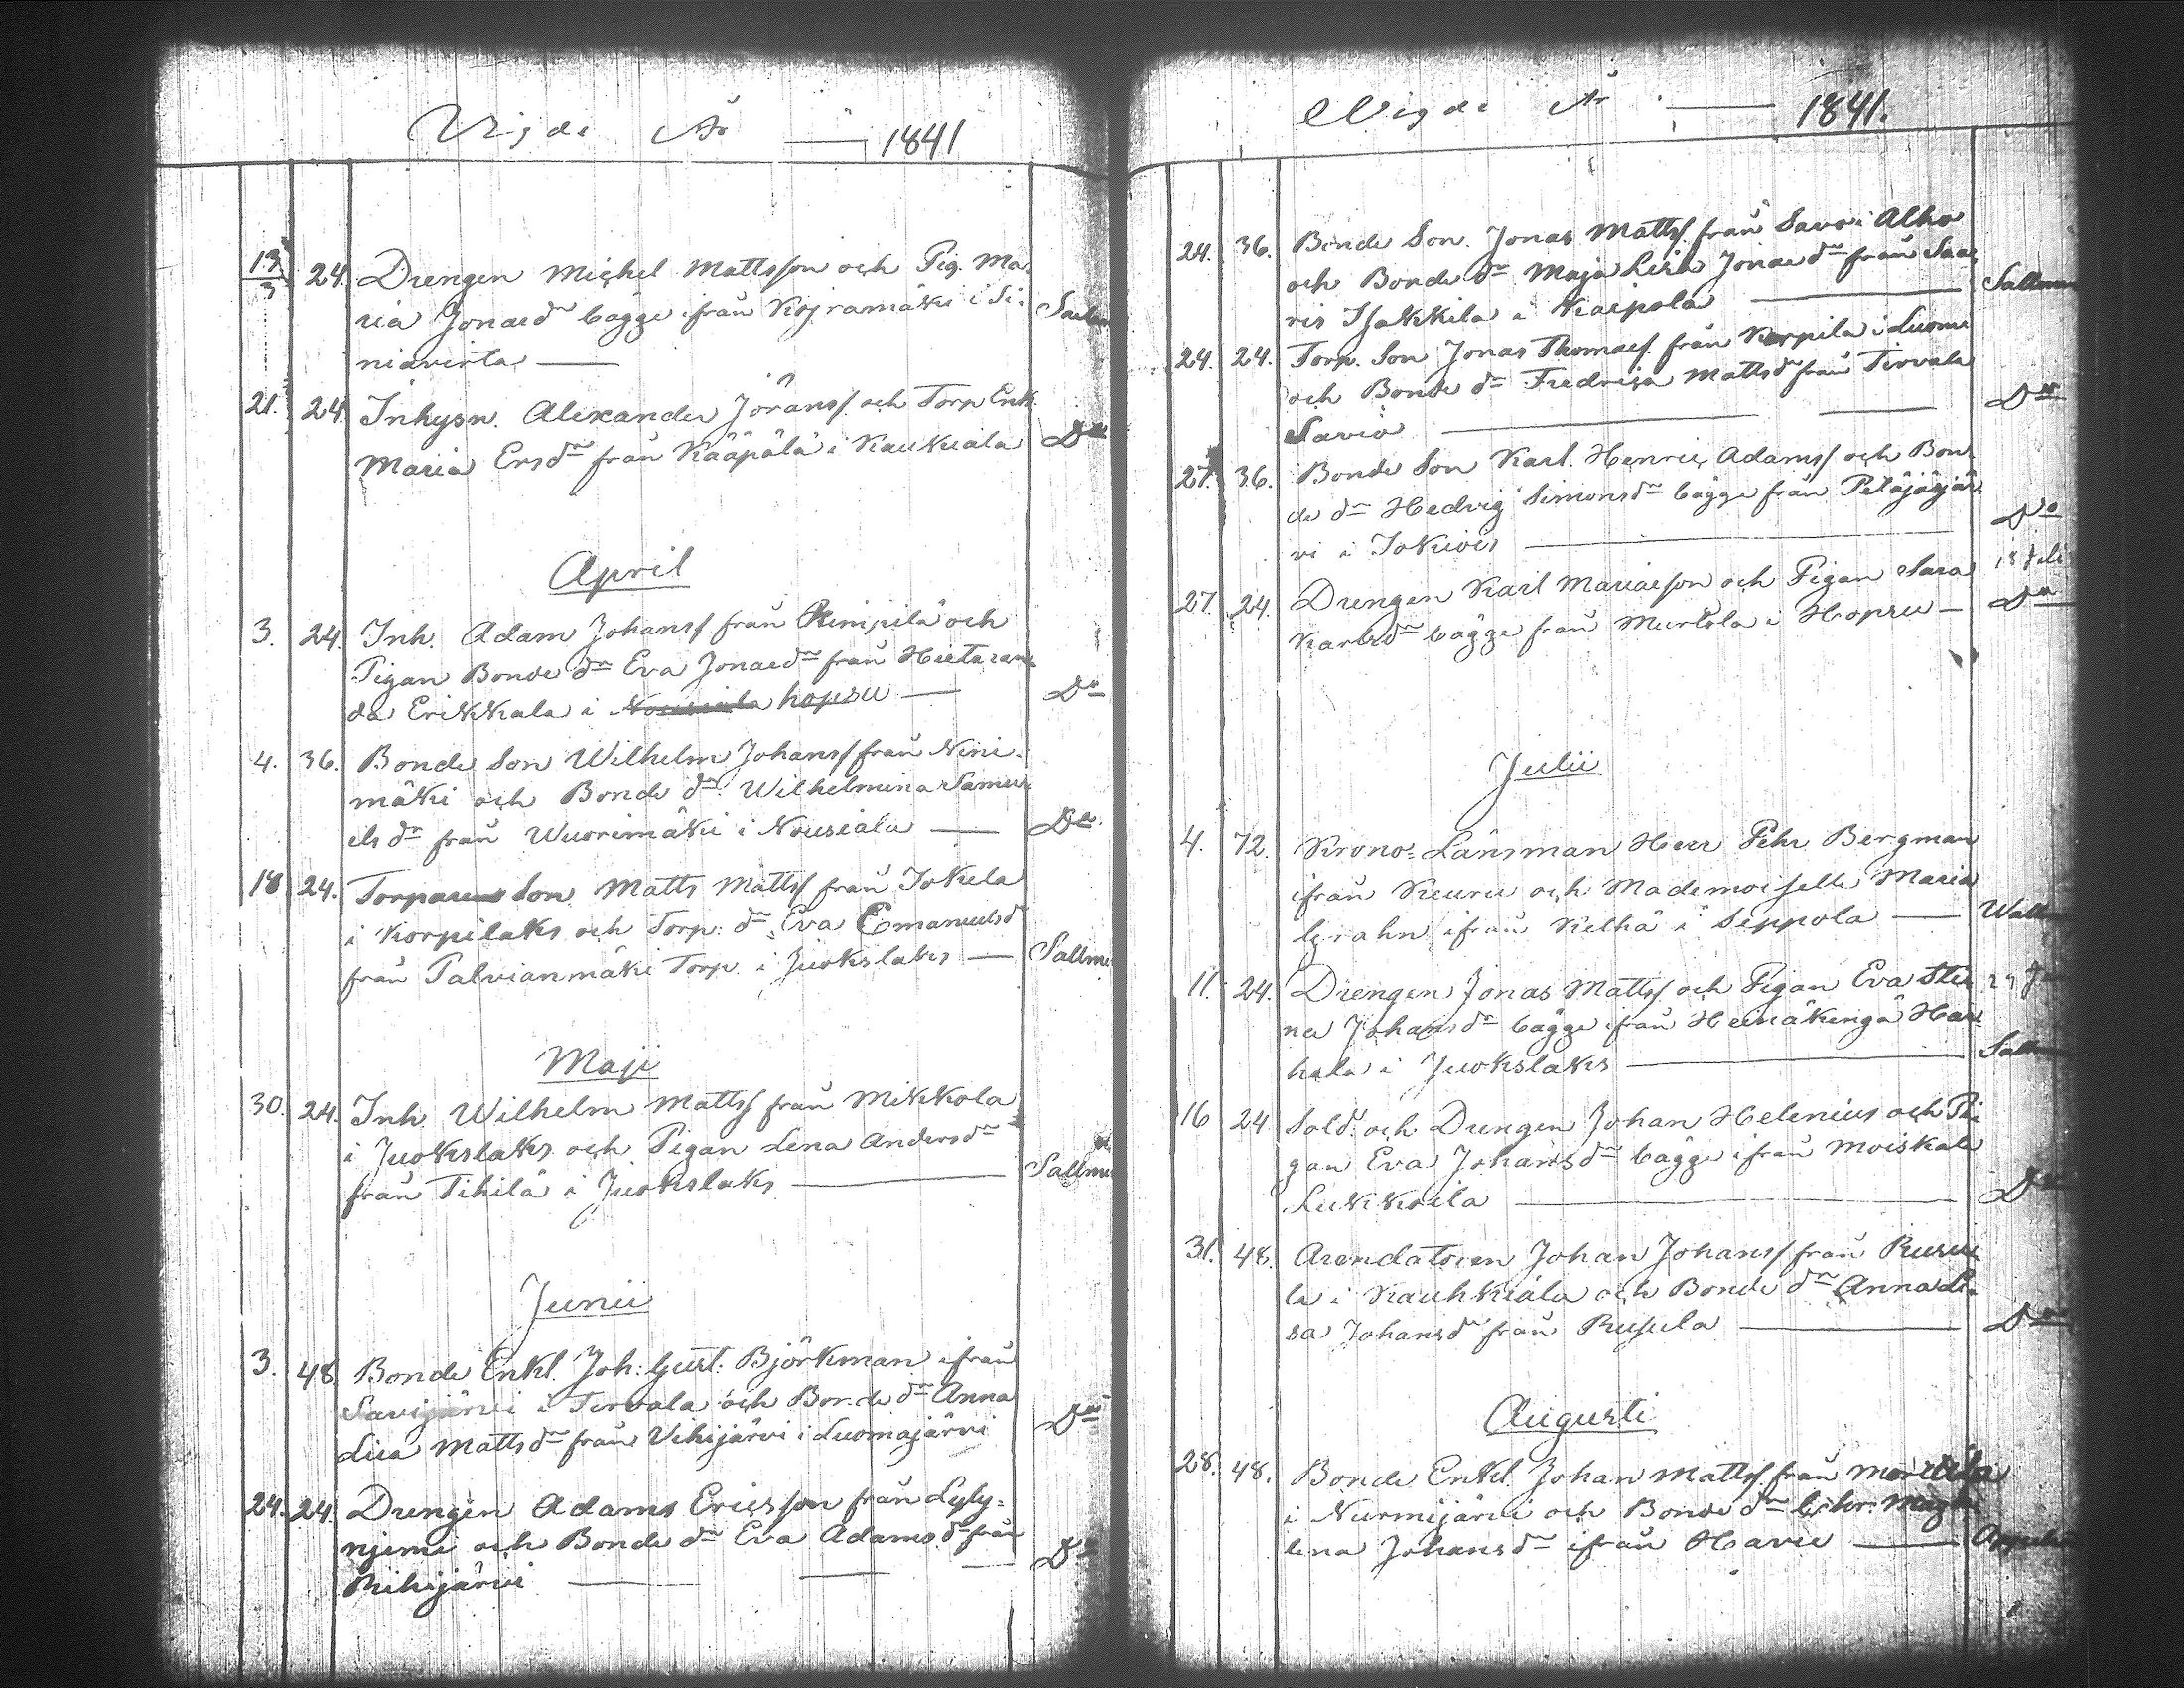 Vigde År — 1841
13/3 24. Drengen Michel Mattsson och Pig. Ma-
ria Jonaedr bägge ifrån Kojramäki i Si-
niävirta —
21. 24. Inhysn. Alexander Jöranss och Torp Enk.
Maria Ersdr från Kääpälä i Kaukiala Do
April
3. 24. Inh. Adam Johanss från Rimpilä och
Pigan Bonde dr Eva Jonaedr från Hietaran-
da Erikkala i hopsu — Do
4. 36. Bonde Son Wilhelm Johanss från Nini-
mäki och Bonde dr Wilhelmina Samu-
els dr från Wuorimäki i Nousiala — Do.
18 24. Torparens Son Matts Mattss från Jokela
i Korpilaks och Torp. dr Eva Emanuelsd
från Palvianmäki Torp i Juokslaks — Sallme
Maji
30. 24. Inh Wilhelm Mattss från Mikkola
i Juokslaks och Pigan Lena Andersdr
från Tihilä i Juokslaks — Sallme
Junii
3. 48 Bonde Enkl. Joh: Gust: Björkman ifrån
Savijärvi i Tirvala och Bonde dr Anna
Lisa Mattsdr från Vihijärvi i Luomajärvi Do
24. 24. Drengen Adams Ericsson från Lyly-
njemi och Bonde dr Eva Adamsdr från
Rihijärvi — Do
Vigde År — 1841.
24. 36. Bonde Son Jonas Mattss. från Savoi Alho
och Bonde dr Maja Lisa Jonaedr från Saa-
ris Isakkila i Kaipola — Sallme
24. 24. Torp. Son Jonas Thomass. från Korpila i Luome
och Bonde dr Fredrica Mattsdr från Tirvala
Saviö — Do
27. 36. Bonde Son Karl Henric Adamss och Bon-
de dr Hedvig Simonsdr bägge från Petäjäjär-
vi i Jokiois — Do
27. 24. Drengen Karl Mariaeson och Pigan Sara
Karlsdr bägge från Murtola i Hopsu — Do
Julii
4. 72. Krono-Länsman Herr Pehr Bergman
ifrån Keuru och Mademoiselle Maria
Grahn ifrån Kelhä i Seppola —
11. 24. Drengen Jonas Mattss och Pigan Eva Sti-
na Johansdr bägge ifrån Heinäkengä Har-
hala i Juokslaks —
16 24 Sold. och Drengen Johan Helenius och Pi-
gan Eva Johansdr bägge ifrån Moiskala
Lukkoila — Do
31. 48. Arendatoren Johan Johanss från Rusu-
la i Kauhkiala och Bonde dr Anna Li-
sa Johansdr från Rusula — Do
Augusti
28. 48. Bonde Enkl. Johan Mattss. från
i Nurmijärvi och Bonde dr Chr. Magda-
lena Johansdr ifrån Havii —